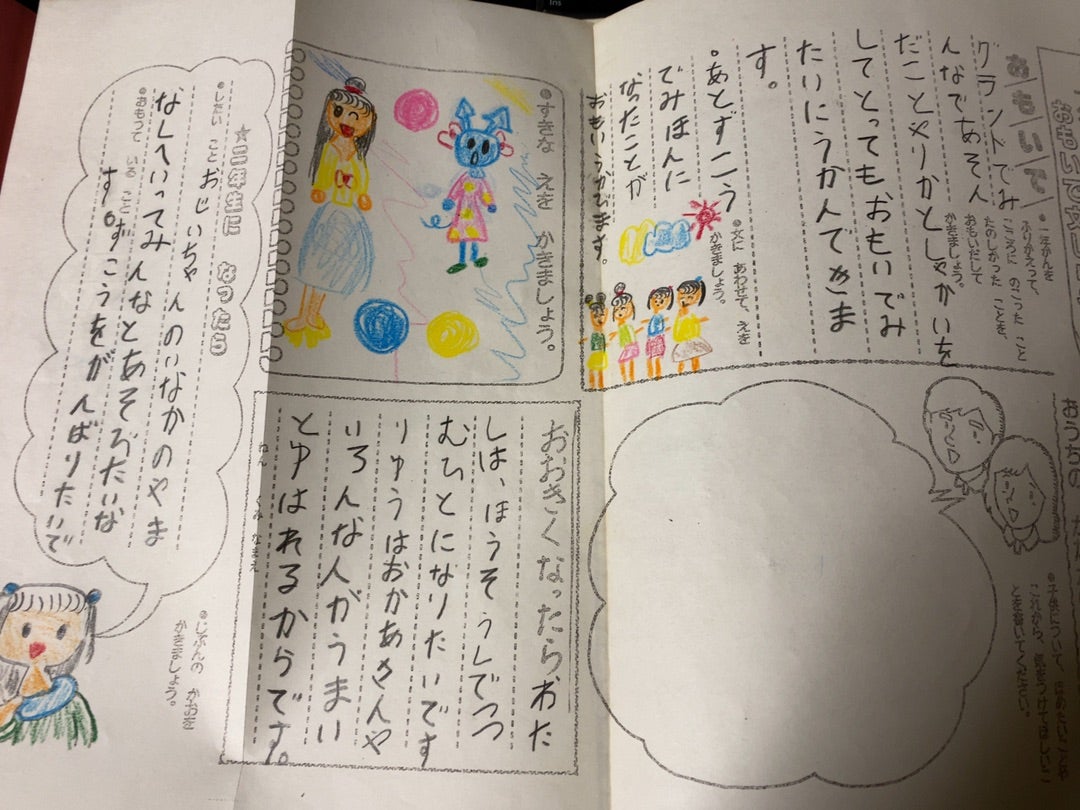 おもいで
●一年かんを
ふりかえって、
こころに のこった こと
たのしかった ことを、
おもいだして
かきましょう。
グランドでみ
んなであそん
だことやりかとしゃかいを
してとってもおもいでみ
たいにうかんできま
す。
●あとずこう
でみほんに
なったことが
おもいうかびます。
●文に あわせて、えを
かきましょう。
●すきな えを かきましょう。
おうちの
●子供について、ほめたいことや
これから、気をつけてほしいこ
とを書いてください。
おおきくなったらわた
しは、ほうそうしでつつ
むひとになりたいです
りゅうはおかあさんや
いろんな人がうまい
とゆはれるからです。
ねん くみ なまえ
☆二年生に なったら
●したい こと
おじいちゃんのいなかのやま
なしへいってみんなとあそびたいな
●おもって いる こと
ずこうをがんばりたいで
す。
●じぶんの かおを
かきましょう。